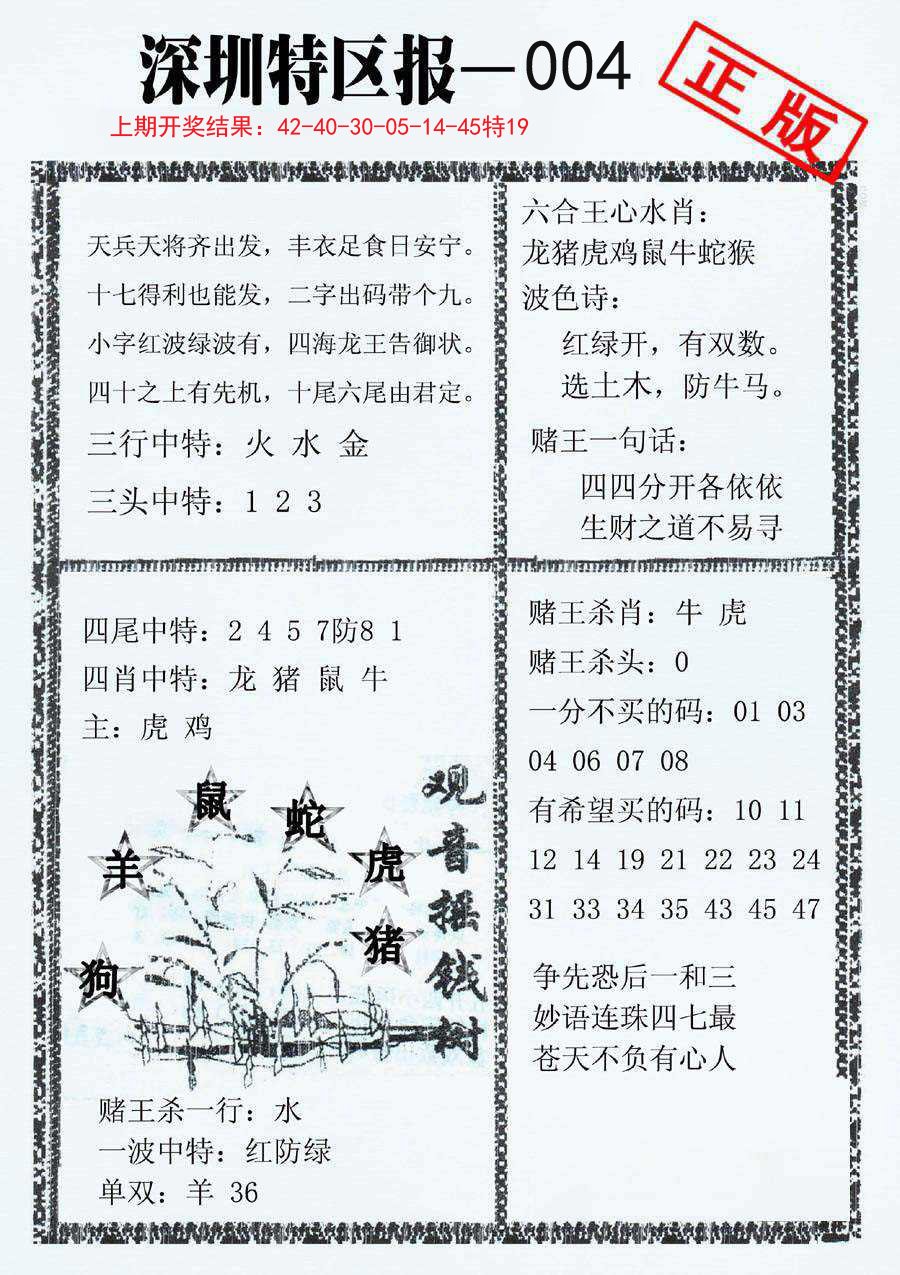 深圳特区报—004
正版
上期开奖结果：42-40-30-05-14-45特19
天兵天将齐出发，丰衣足食日安宁。
十七得利也能发，二字出码带个九。
小字红波绿波有，四海龙王告御状。
四十之上有先机，十尾六尾由君定。
三行中特：火 水 金
三头中特：1 2 3
六合王心水肖：
龙猪虎鸡鼠牛蛇猴
波色诗：
红绿开，有双数。
选土木，防牛马。
赌王一句话：
四四分开各依依
生财之道不易寻
四尾中特：2 4 5 7防8 1
四肖中特：龙 猪 鼠 牛
主：虎 鸡
鼠
蛇
羊
虎
猪
狗
观音摇钱树
赌王杀一行：水
一波中特：红防绿
单双：羊 36
赌王杀肖：牛 虎
赌王杀头：0
一分不买的码：01 03
04 06 07 08
有希望买的码：10 11
12 14 19 21 22 23 24
31 33 34 35 43 45 47
争先恐后一和三
妙语连珠四七最
苍天不负有心人